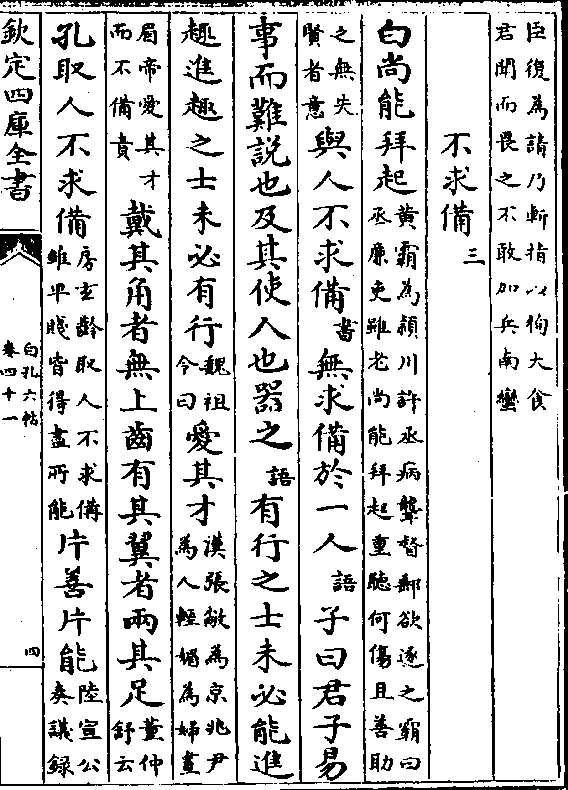 臣復為請乃斬指以狥大食
君聞而畏之不敢加兵南蠻
不求備三
白尚能拜起黄霸為潁川許丞病聾督郵欲逐之霸曰
丞廉吏雖老尚能拜起重聽何傷且善助
之無失
賢者意與人不求備書無求備於一人語子曰君子易
事而難説也及其使人也器之語有行之士未必能進
趣進趣之士未必有行魏祖
令曰愛其才漢張敞為京兆尹
為人輕媚為婦畫
眉帝愛其才
而不備責戴其角者無上齒有其翼者兩其足董仲
舒云
孔取人不求備房玄齡取人不求備
雖卑賤皆得盡所能片善片能陸宣公
奏議録
欽定四庫全書
白孔六帖
卷四十一
四